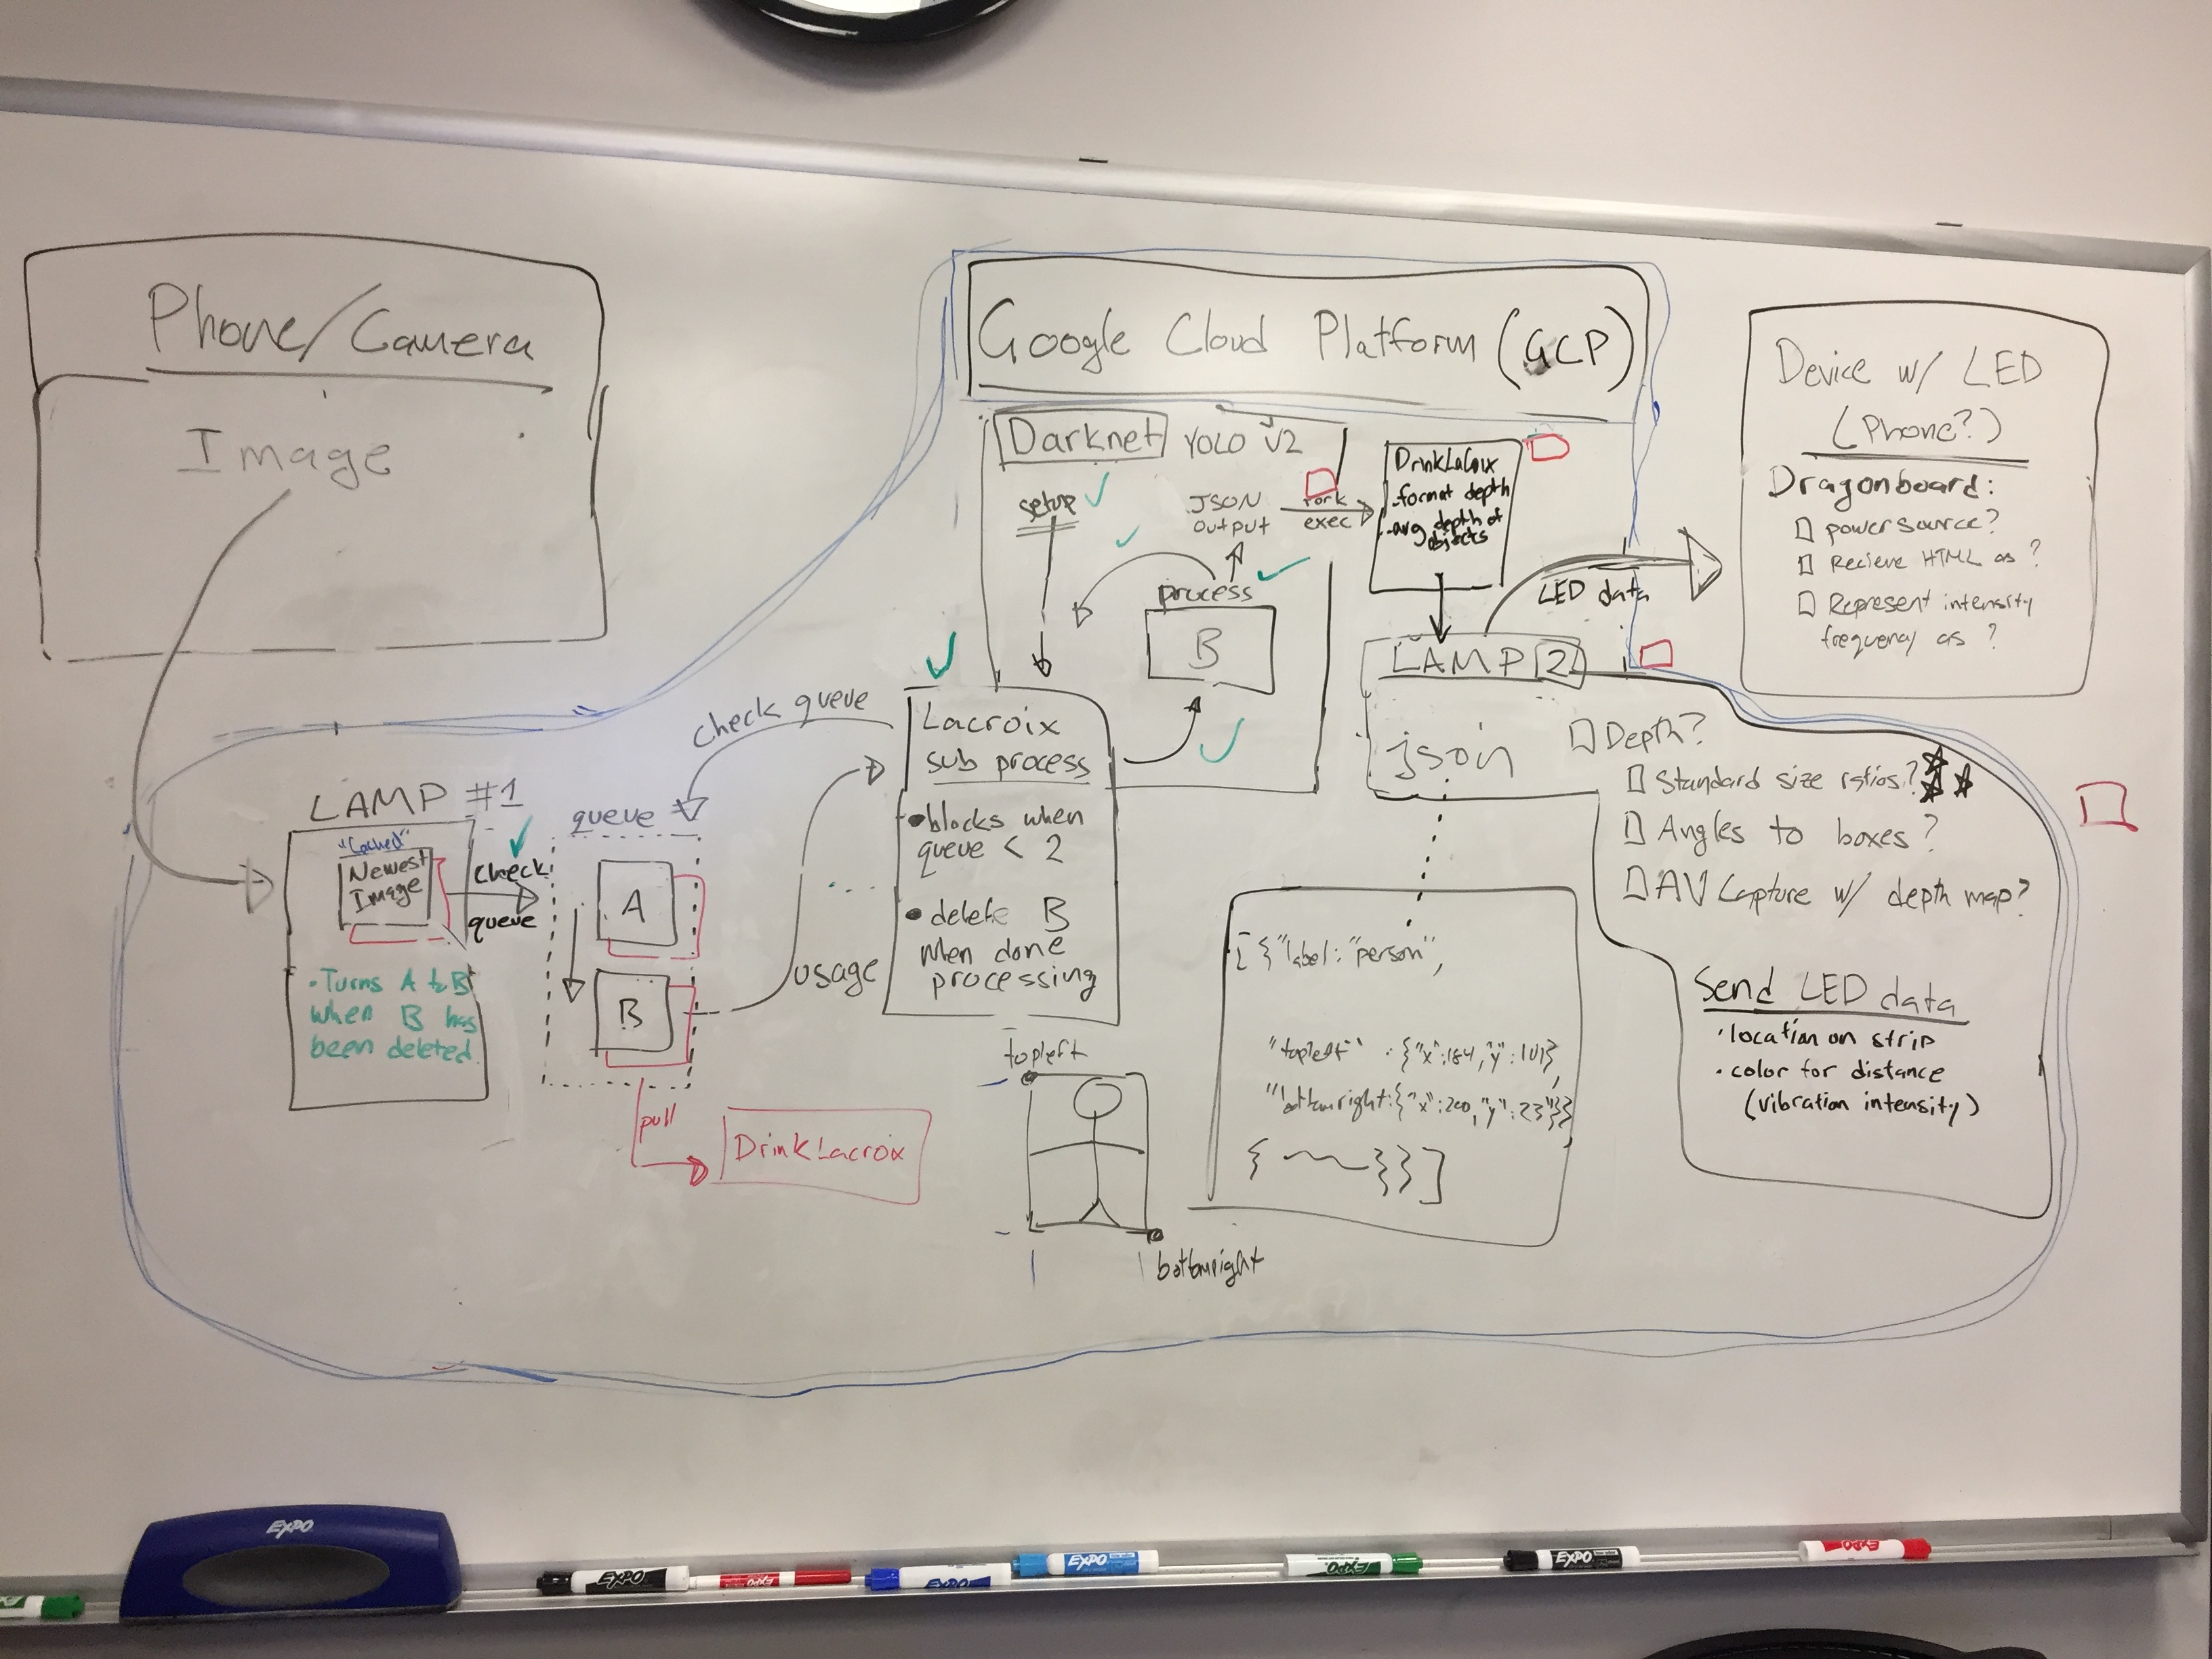 Phone/Camera
Image
Google Cloud Platform (GCP)
Darknet YOLO v2
setup
JSON
output
fork
exec
process
B
DrinkLaCoix
-format depth
-avg depth of
objects
LED data
Device w/ LED
(Phone?)
Dragonboard:
power source?
Recieve HTML as ?
Represent intensity
frequency as ?
LAMP 2
json
Depth?
Standard size ratios?
Angles to boxes?
AV Capture w/ depth map?
Send LED data
• location on strip
• color for distance
(vibration intensity)
check queue
Lacroix
sub process
• blocks when
queue < 2
• delete B
when done
processing
usage
LAMP #1
"Cached"
Newest
Image
• Turns A to B
when B has
been deleted
check
queue
queue
A
B
pull
DrinkLacroix
topleft
bottomright
[{"label": "person",
"topleft" : {"x":184,"y":101},
"bottomright:{"x":200,"y":23"}}
{ }}]
EXPO
EXPO
EXPO
EXPO
EXPO
EXPO
EXPO
EXPO